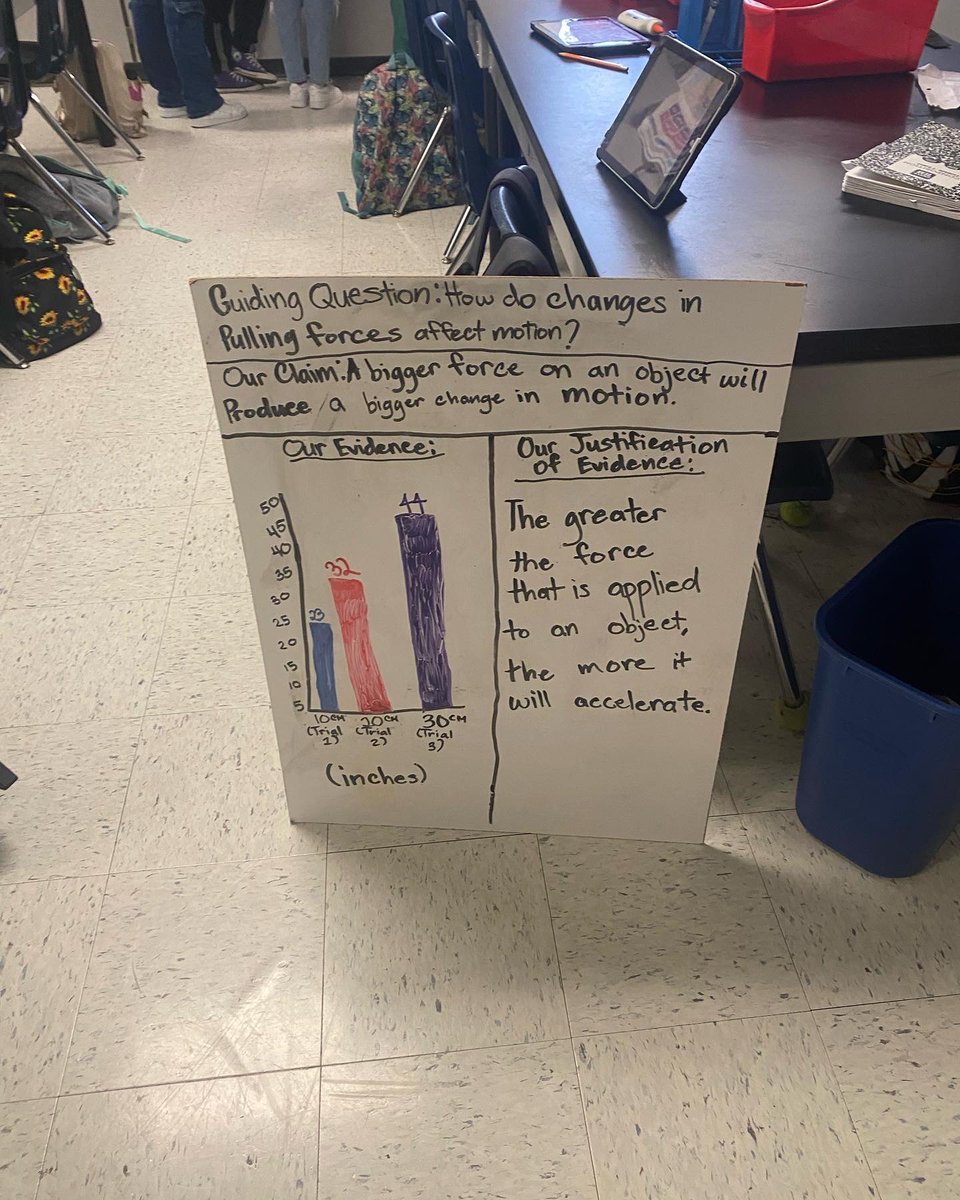 Guiding Question: How do changes in
Pulling forces affect motion?
Our Claim: A bigger force on an object will
Produce a bigger change in motion.
Our Evidence:
50
45
40
35
30
25
20
15
10
5
23
32
44
10cm
(Trial
1)
20cm
(Trial
2)
30cm
(Trial
3)
(inches)
Our Justification
of Evidence:
The greater
the force
that is applied
to an object,
the more it
will accelerate.